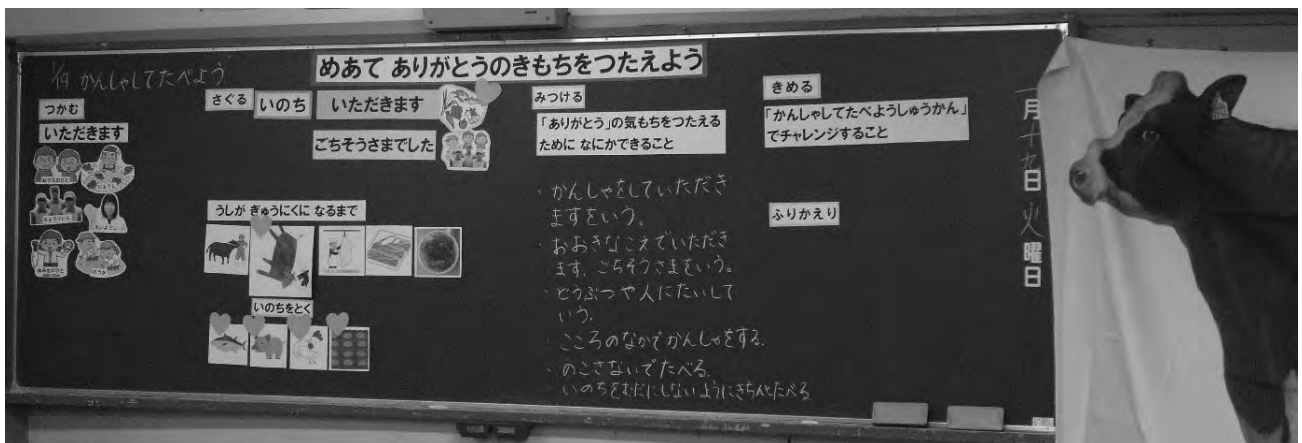 1/19 かんしゃしてたべよう
めあて ありがとうのきもちをつたえよう
つかむ
いただきます
おうちのひと
さぐる
いのち
いただきます
ごちそうさまでした
うしが ぎゅうにくに なるまで
いのちをとく
みつける
「ありがとう」の気もちをつたえる
ために なにかできること
・かんしゃをしていただき
ますをいう。
・おおきなこえでいただき
ます、ごちそうさまをいう。
・どうぶつや人にたいして
いう。
・こころのなかでかんしゃをする。
・のこさないでたべる。
・いのちをむだにしないようにきちんとたべる
きめる
「かんしゃしてたべようしゅうかん」
でチャレンジすること
ふりかえり
一月十九日 火曜日